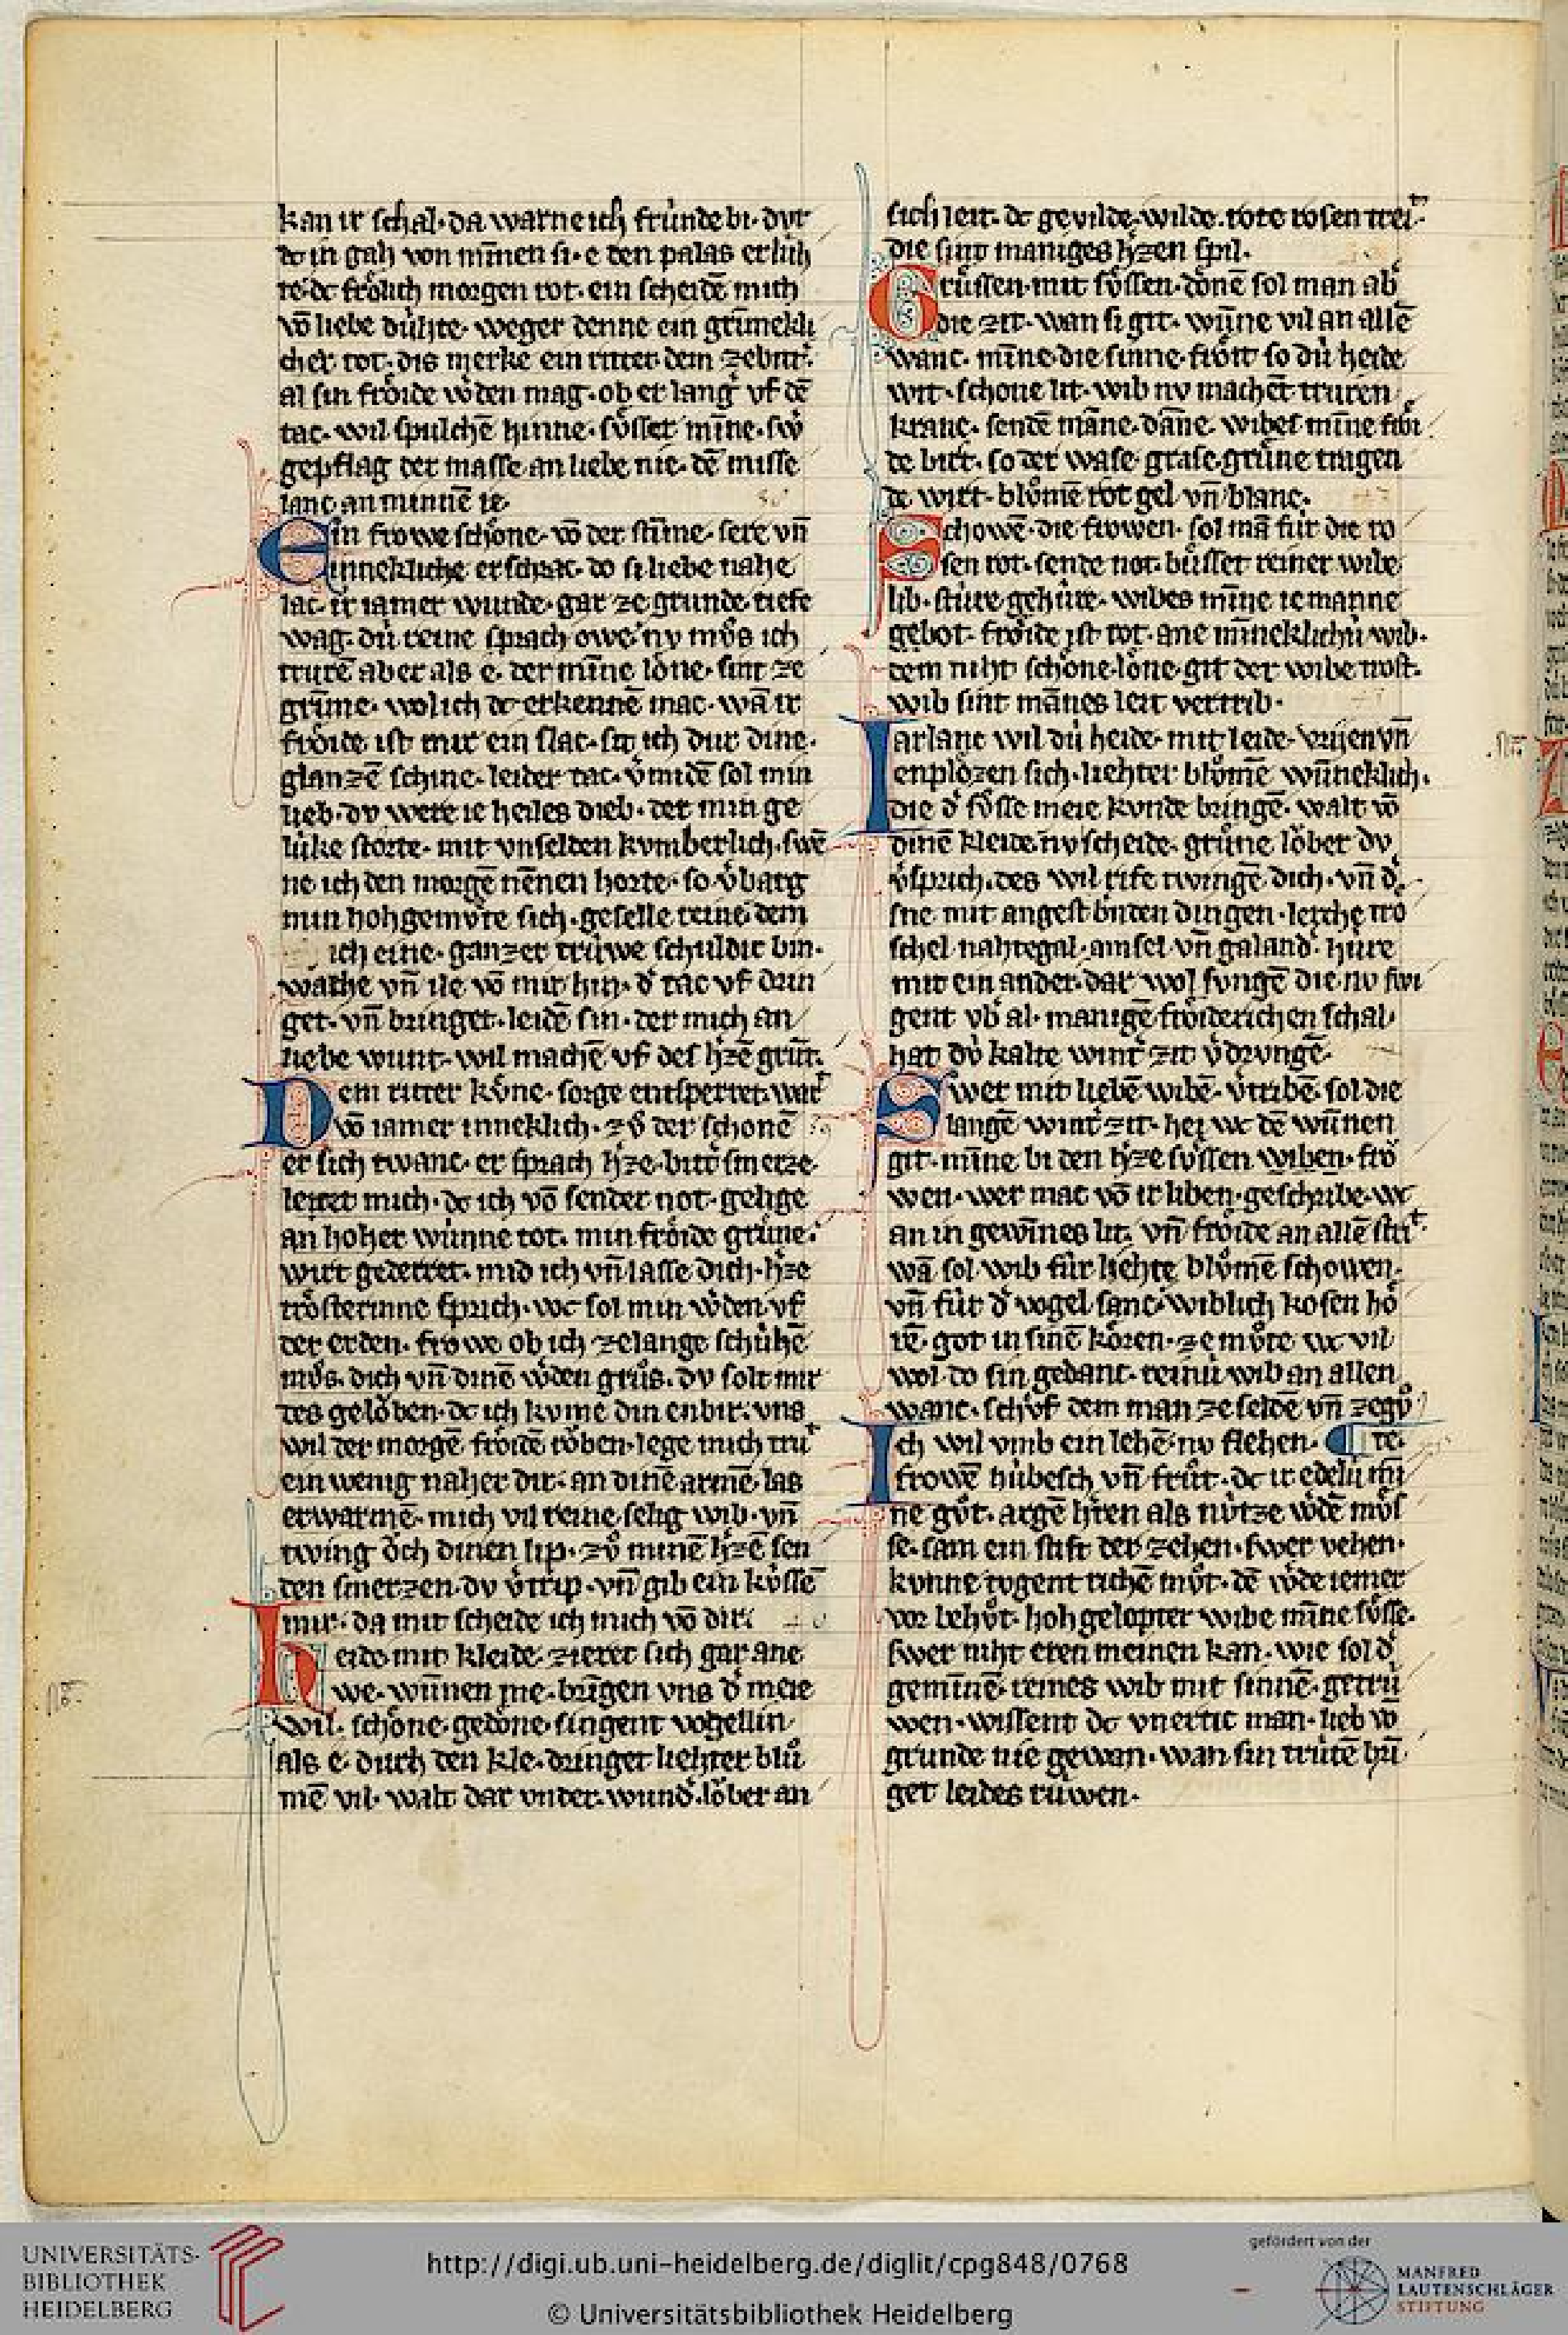 kan ir schal · da warne ich fründe bi · dur
dc in gah von minnen si · e den palas erlüh
te · dc frölich morgen rot · ein scheidē mich
vō liebe duhte · weger denne ein grimekli
cher tot · dis merke ein ritter · dem
al sin fröide wdē mag · ob er lang vf dē
tac · wil spulchē hinne · sṽsser mīne · sw
gepflag der masse an liebe nie · dē misse
lanc an minnē ie ·
Ein frowe schöne · vō der stīme · sere vn̄
inneklīche erschrac · do si liebe nahe
lac · ir iamer wunde · gar ze grunde · tiefe
wag · dü reine sprach owe nv mvͦs ich
trurē aber als e · der mīne lone · sint ze
grīme · wol ich dc erkennē mac · wā ir
fröide ist mir ein slac · sit ich dur dine ·
glanzē schine · leider tac · v̓midē sol min
lieb · dv were ie heiles dieb · der min ge
lüke storte · mit vnselden kvmberlich · swē
ne ich den morgē nēnen horte · so v̓barg
min hohgemvͤte sich · geselle reine dem
ich eine · ganzer trüwe schuldic bin ·
wache vn̄ ile vō mir hin · d̓ tac vf drin
get · vn̄ bringet · leidē sin · der mich an
liebe wunt · wil machē vf des h̓zē grūt ·
Dem ritter kvͤne · sorge entsperret · wart
vō iamer inneklich · zvͦ der schonē
er sich twanc · er sprach h̓ze · bitt̓ smerze
leitet mich · dc ich vō sender not · gelige
an hoher wunne tot · min fröide grüne ·
wirt gederret · mid ich vn̄ lasse dich · h̓ze
trösterinne sprich · wc sol min wdē vf
der erden · frowe ob ich ze lange schühē
mvͦs · dich vn̄ dinē wden grüs · dv solt mir
des gelöben · dc ich kvme din enbir · vns
wil der morgē fröidē röben · lege mich trut
ein wenig naher dir · an dinē armē · las
erwarmē · mich vil reine selig wib · vn̄
twing öch dinen lip · zvͦ minē h̓zē sen
den smerzen · dv v̓trip · vn̄ gib ein kvssē
mir · da mit scheide ich mich vō dir ·
heide mit kleide · zieret sich gar ane
we · wūnen me · brīgen vns d̓ meie
wil · schöne · gedöne · singent vogellin
als e · durch den kle · dringet liehter blvͦ
mē vil · walt dar vnder · wund̓ · löber an
sich leit · dc gevilde · wilde · rote rosen treit
die sint maniges h̓zen spil ·
Grüssen · mit sṽssen · dönē sol man ab̓
die zit · wan si git · wūne vil an allē
wanc · mīne · die sinne · fröit so dü heide
wit · schone lit · wib nv machēt truren
kranc · sendē māne · dāne · wibes mīne fröi
de birt · so der wase · grase · grüne tragen
de wirt · blvͦmē rot gel vn̄ blanc ·
Schowē · die frowen · sol mā für die ro
sen rot · sende not · büsset reiner wibe
lib · stüre gehüre · wibes mīne ie manne
gebot · fröide ist tot · ane mīneklichü wib ·
dem niht schone · lone · git der wibe trost ·
wib sint mānes leit vertrib ·
Iarlanc wil dü heide · mit leide · vn̄
enplözen sich · liehter blvͦmē wūneklich ·
die d̓ sṽsse meie kvnde bringē · walt vō
dinē kleide nv scheide · grüne löber dv
v̓sprich · des wil rife twingē dich · vn̄ d̓
sne mit angestbn̄den dingen · lerche tro
schel nahtegal · amsel vn̄ galand̓ · hüre
mit ein ander · dar wol svngē die nv swi
gent vb̓ al · manigē fröiderichen schal ·
hat dv kalte wint̓ zit v̓drvngē ·
Swer mit liebē wibē · v̓tribē · sol die
langē wint̓ zit · hei wc dē wūnen
git · mīne bi den h̓ze sṽssen wiben · frö
wen · wer mac vō ir liben · geschribē · wc
an in gewīnes lit · vn̄ fröide an allē strit ·
wā sol wib für liehte blvͦmē schowen ·
vn̄ für d̓ vogel sanc · wiblich kosen hö
rē · got in sinē kören · ze mvͦte wc vil
wol · do sin gedanc · reinü wib an allen
wanc · schvͦf dem man ze seldē vn̄ ze gvͦ
Ich wil vmb ein lehē nv flehen · te ·
frowē hübesch vn̄ frvͦt · dc ir edelü mī
ne gvͦt · argē h̓ren als nvtze wdē mvͦs
se · sam ein stift der zehen · swer vehen ·
kvnne tvgent richē mvͦt · dē wde iemer
vor behvͦt · hoh gelopter wibe mīne sṽsse ·
swer niht eren meinen kan · wie sol d̓
gemīnē · reines wib mit sinnē · getrü
wen · wissent dc vnertic man · lieb vō
grunde nie gewan · wan sin trütē brī
get leides rüwen ·
UNIVERSITÄTS-
BIBLIOTHEK
HEIDELBERG
http://digi.ub.uni-heidelberg.de/diglit/cpg848/0768
© Universitätsbibliothek Heidelberg
gefördert von der
MANFRED
LAUTENSCHLÄGER
STIFTUNG